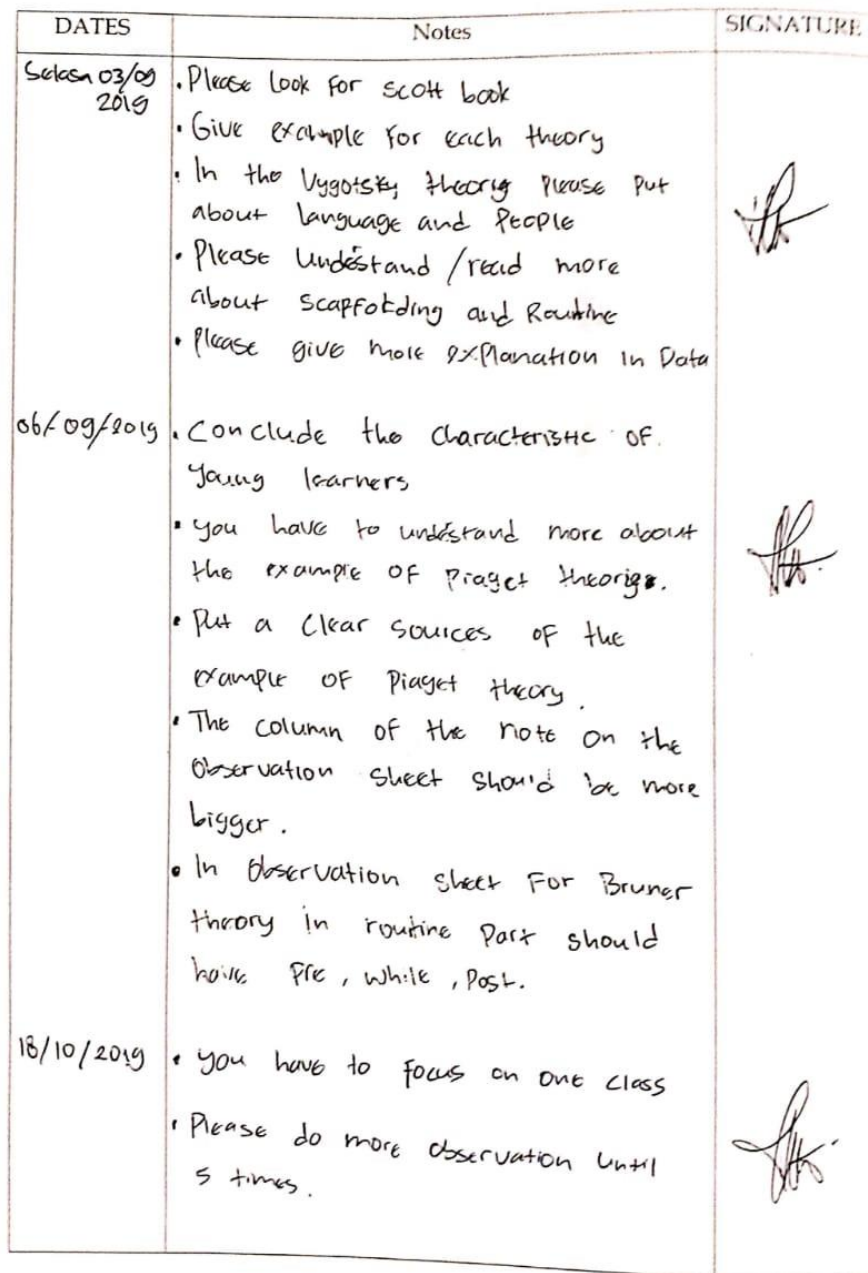 DATES Notes SIGNATURE
Selasa 03/09 • Please look for scott book
2019
• Give example for each theory
• In the Vygotsky theory please put
about language and People
• Please undestand / read more
about scapfolding and Routine
• Please give more explanation in Data
06/09/2019 • Conclude the characteristic of
young learners
• you have to undestand more about
the example of Piaget theories.
• Put a clear sources of the
example of Piaget theory.
• The column of the note on the
Observation sheet should be more
bigger.
• In Observation sheet for Bruner
theory in routine Part should
have Pre, while, Post.
18/10/2019 • you have to focus on one class
• Please do more observation until
5 times.